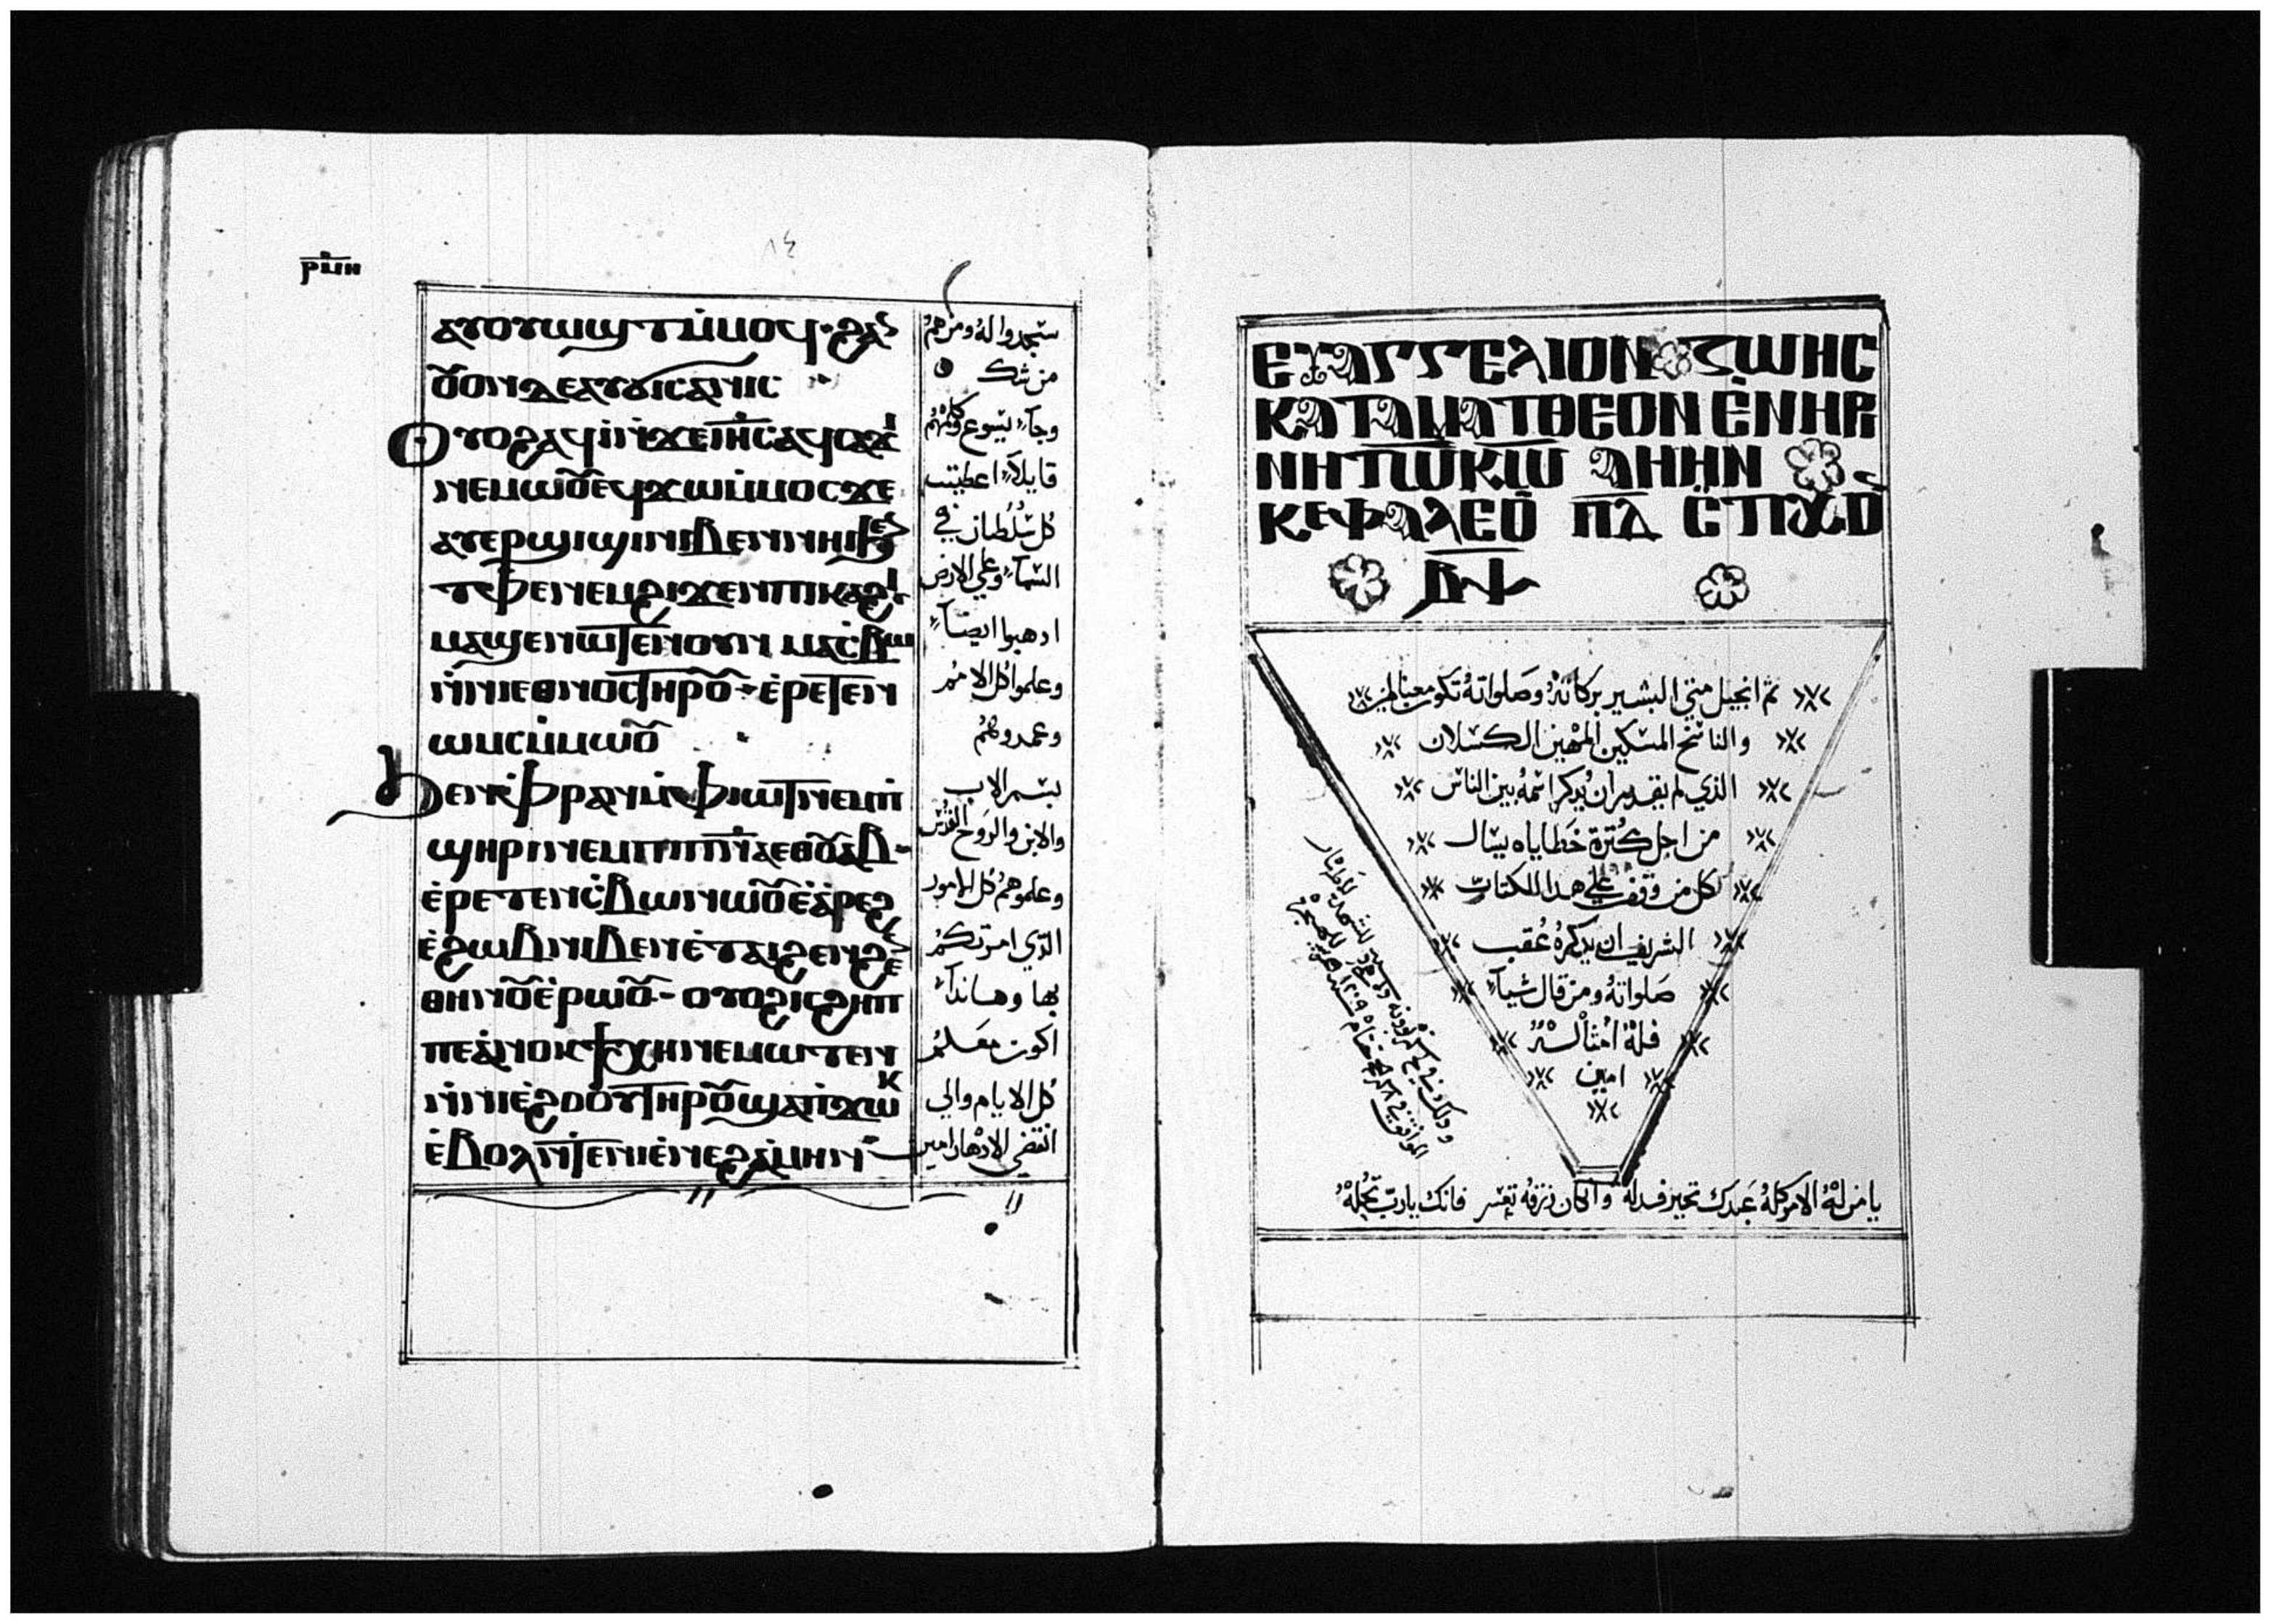 ⲣⲙⲏ
١٤
ⲁⲩⲟⲩⲱϣⲧ ⲙ̇ⲙⲟϥ· ϩⲁ
ⲟⲩⲟⲛ ⲇⲉ ⲁⲩϭⲓⲥⲁⲛⲓⲥ
Ⲟⲩⲟϩ ⲁϥⲓ̇ ⲛ̇ϫⲉ ⲓⲏⲥ ⲁϥⲥⲁϫⲓ
ⲛⲉⲙⲱⲟⲩ ⲉϥϫⲱ ⲙ̇ⲙⲟⲥ ϫⲉ
ⲁⲩⲉⲣϣⲓϣⲓ ⲛⲓⲃⲉⲛ ⲛⲏⲓ ϧⲉⲛ
ⲧⲫⲉ ⲛⲉⲙ ϩⲓϫⲉⲛ ⲡⲓⲕⲁϩⲓ
ⲙⲁϣⲉⲛⲱⲧⲉⲛ ⲟⲩⲛ ⲙⲁⲥ̇ⲃⲱ
ⲛ̇ⲛⲓⲉⲑⲛⲟⲥ ⲧⲏⲣⲟⲩ· ⲉ̇ⲣⲉⲧⲉⲛ
ⲱⲙⲥ ⲙ̇ⲙⲱⲟⲩ
ϧⲉⲛ ⲫ̇ⲣⲁⲛ ⲙ̇ⲫⲓⲱⲧ ⲛⲉⲙ ⲡ̇
ϣⲏⲣⲓ ⲛⲉⲙ ⲡⲓⲡⲛⲁ ⲉⲑⲟⲩⲁⲃ·
ⲉ̇ⲣⲉⲧⲉⲛⲥ̇ⲃⲱ ⲛⲱⲟⲩ ⲉ̇ⲁ̇ⲣⲉϩ
ⲉ̇ϩⲱⲃ ⲛⲓⲃⲉⲛ ⲉ̇ⲧⲁⲓϩⲉⲛϩⲉ
ⲑⲏⲛⲟⲩ ⲉ̇ⲣⲱⲟⲩ· ⲟⲩⲟϩ ⲓⲥ ϩⲏⲡ
ⲡⲉ ⲁ̇ⲛⲟⲕ ϯⲭⲏ ⲛⲉⲙⲱⲧⲉⲛ
ⲛ̇ⲛⲓⲉ̇ϩⲟⲟⲩ ⲧⲏⲣⲟⲩ ϣⲁ ⲡ̇ϫⲱⲕ
ⲉ̇ⲃⲟⲗ ⲛ̇ⲧⲉ ⲛⲓⲉ̇ⲛⲉϩ ⲁ̇ⲙⲏⲛ
سجدوا له ومنهم
من شك
وجآء يسوع وكلمهم
قايلاً اعطيت
كل سلطان في
السمآء وعلي الارض
ادهبوا ايضآ
وعلموا كل الامم
وعمدوهم
بسم الاب
والابن والروح القدس
وعلموهم كل الامور
الذي امرتكم
بها وهاندا
اكون معكم
كل الايام والي
انقضي الادهار امين
ⲉⲩⲁⲅⲅⲉⲗⲓⲟⲛ ⲍⲱⲏⲥ
ⲕⲁⲧⲁ ⲙⲁⲧⲑⲉⲟⲛ ⲉ̇ⲛ ⲏⲣⲓ
ⲛⲏ ⲧⲱ ⲕⲱ ⲁⲙⲏⲛ
ⲕⲉⲫⲁⲗⲉⲟⲩ
ⲃⲯ
تم انجيل متي البشير بركاته وصلواته تكون معنا امين
والناسخ المسكين المهين الكسلان
الذي لم يقدر ان يدكر اسمه بين الناس
من اجل كترة خطاياه يسال
لكل من وقف علي هدا الكتاب
الشريف ان يدكره عقب
صلواته ومن قال شيآ
فله امثاله
امين
يا من له الامر كله عبدك تحير فدله وان كان رزقه تعسر فانك يارب تحله